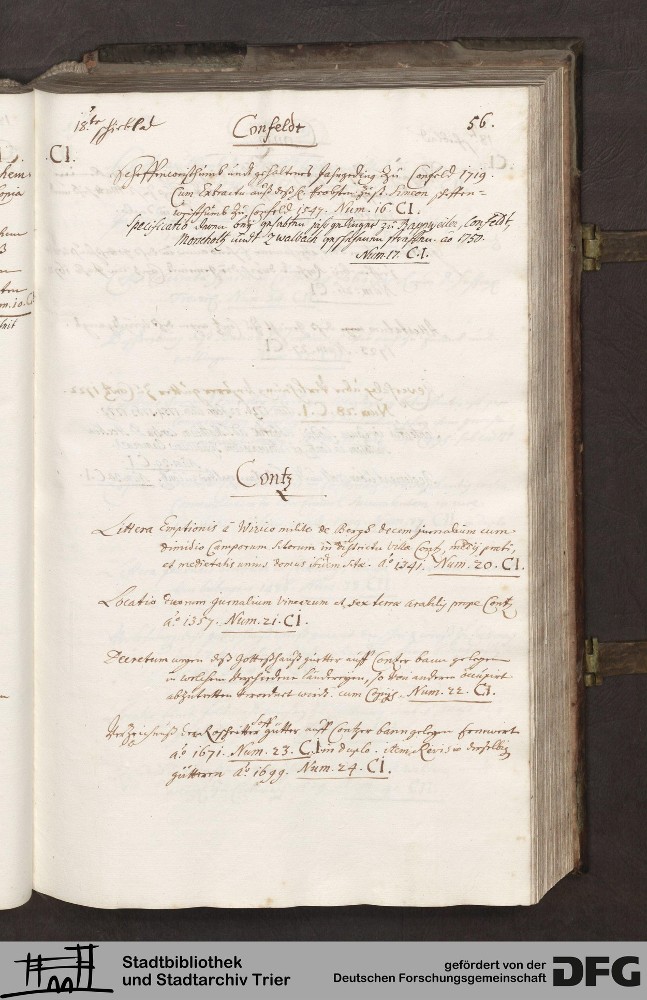 18.te Schubla
Confeldt
56.
CI.
Scheffenweisthumb undt gehaltenes Jahrgeding zu Confeld 1719.
Cum Extractu auß deß H. Probsten zu St. Simeon scheffen=
weisthumb zu Confeld 1547. Num. 16. CI.
Specificatio deren zu Bapweiler, Confeldt,
undt Zwalbach ao 1750.
Num. 17. C.I.
Contz
Littera Emptionis à Wirico milite de Berge decem jurnalium cum
dimidio Camporum sitorum in districtu villa Contz, medij prati,
et medietatis unius domus ibidem sitæ. Aº 1341. Num. 20. CI.
Locatio duorum jurnalium vinearum et sex terræ arabilis prope Contz
aº 1357. Num. 21. CI.
Decretum wegen deß Gotteßhauß gütter auff Contzer bann gelegen
in welchem verschiedene ländereyen, so von anderen occupirt
abzutretten verordnet wird. cum Copijs. Num. 22. CI.
Verzeichnuß der hoff gütter auff Contzer bann gelegen Ernewert
aº 1671. Num. 23. C.I in duplo. item Revisio derselbigen
gütteren aº 1699. Num. 24. CI.
Stadtbibliothek
und Stadtarchiv Trier
gefördert von der
Deutschen Forschungsgemeinschaft
DFG